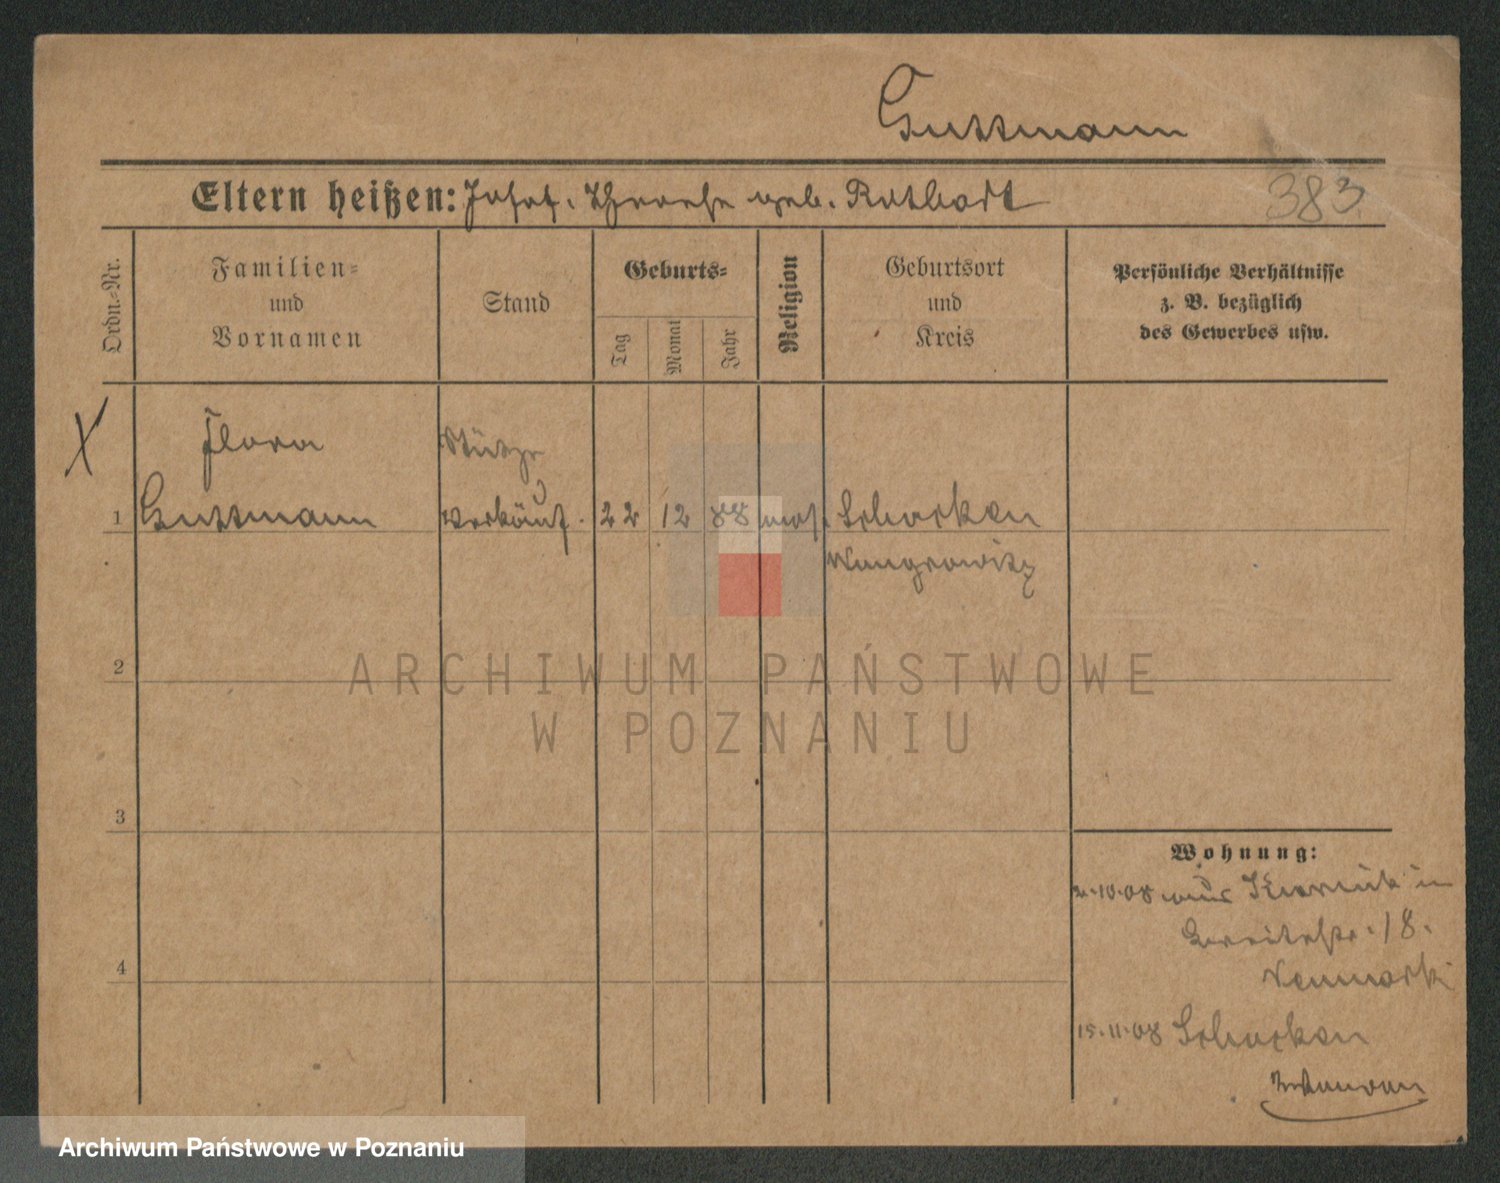 Guttmann
Eltern heißen: Josef, Therese geb. Rothardt
383
Ordn.-Nr.
Familien-
und
Vornamen
Stand
Geburts-
Tag
Monat
Jahr
Religion
Geburtsort
und
Kreis
Persönliche Verhältnisse
z. B. bezüglich
des Gewerbes usw.
X
Flora
Stütze
1 Guttmann Verkäuf. 22 12 88 mos. Schocken
Wongrowitz
2
ARCHIWUM PAŃSTWOWE
W POZNANIU
3
Wohnung:
2.10.08 aus Kurnik in
Breitestr. 18.
4
15.11.08 Schocken
Archiwum Państwowe w Poznaniu